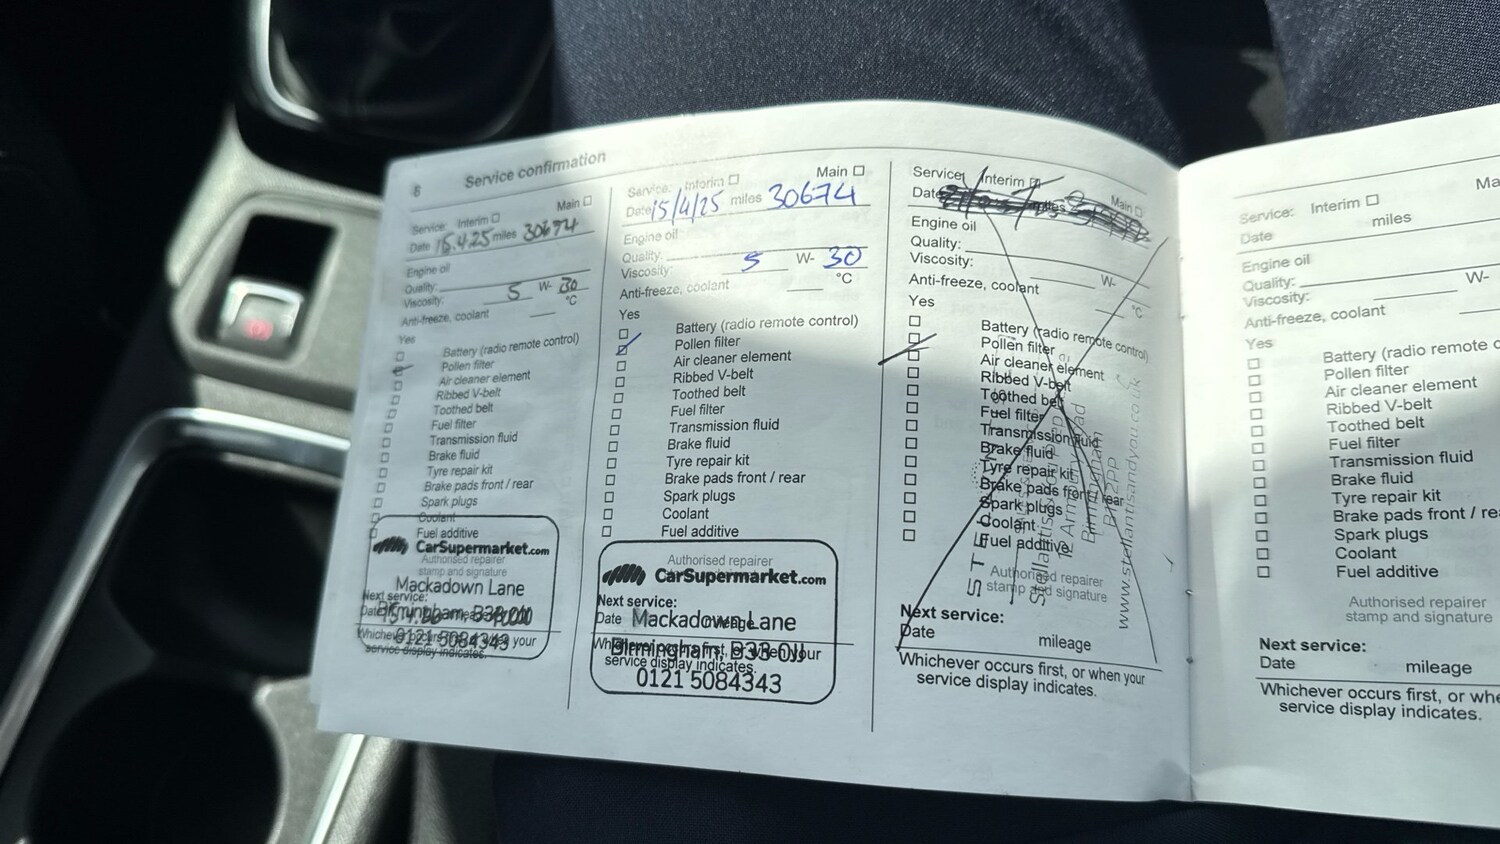 8 Service confirmation
Service: Interim ☐ Main ☐
Date 15.4.25 miles 30674
Engine oil
Quality:
Viscosity: 5 W- 30
Anti-freeze, coolant °C
Yes
☐ Battery (radio remote control)
☑ Pollen filter
☐ Air cleaner element
☐ Ribbed V-belt
☐ Toothed belt
☐ Fuel filter
☐ Transmission fluid
☐ Brake fluid
☐ Tyre repair kit
☐ Brake pads front / rear
☐ Spark plugs
☐ Coolant
☐ Fuel additive
CarSupermarket.com
Authorised repairer
stamp and signature
Mackadown Lane
Next service:
Date
Birmingham, B33
0121 5084343
Whichever occurs first, or when your
service display indicates.
Service: Interim ☐ Main ☐
Date 15/4/25 miles 30674
Engine oil
Quality:
Viscosity: 5 W- 30
Anti-freeze, coolant °C
Yes
☐ Battery (radio remote control)
☑ Pollen filter
☐ Air cleaner element
☐ Ribbed V-belt
☐ Toothed belt
☐ Fuel filter
☐ Transmission fluid
☐ Brake fluid
☐ Tyre repair kit
☐ Brake pads front / rear
☐ Spark plugs
☐ Coolant
☐ Fuel additive
Authorised repairer
CarSupermarket.com
Next service:
Date mileage
Mackadown Lane
Whichever occurs first, or when your
Birmingham, B33 0JJ
service display indicates.
0121 5084343
Service: Interim Main ☐
Date miles
Engine oil
Quality:
Viscosity: W-
Anti-freeze, coolant °C
Yes
☐ Battery (radio remote control)
☑ Pollen filter
☐ Air cleaner element
☐ Ribbed V-belt
☐ Toothed belt
☐ Fuel filter
☐ Transmission fluid
☐ Brake fluid
☐ Tyre repair kit
☐ Brake pads front / rear
☐ Spark plugs
☐ Coolant
☐ Fuel additive
Authorised repairer
stamp and signature
Birmingham
www.stellantisandyou.co.uk
Next service:
Date mileage
Whichever occurs first, or when your
service display indicates.
Service: Interim ☐ Ma
Date miles
Engine oil
Quality: W-
Viscosity:
Anti-freeze, coolant
Yes
☐ Battery (radio remote c
☐ Pollen filter
☐ Air cleaner element
☐ Ribbed V-belt
☐ Toothed belt
☐ Fuel filter
☐ Transmission fluid
☐ Brake fluid
☐ Tyre repair kit
☐ Brake pads front / rea
☐ Spark plugs
☐ Coolant
☐ Fuel additive
Authorised repairer
stamp and signature
Next service:
Date mileage
Whichever occurs first, or whe
service display indicates.